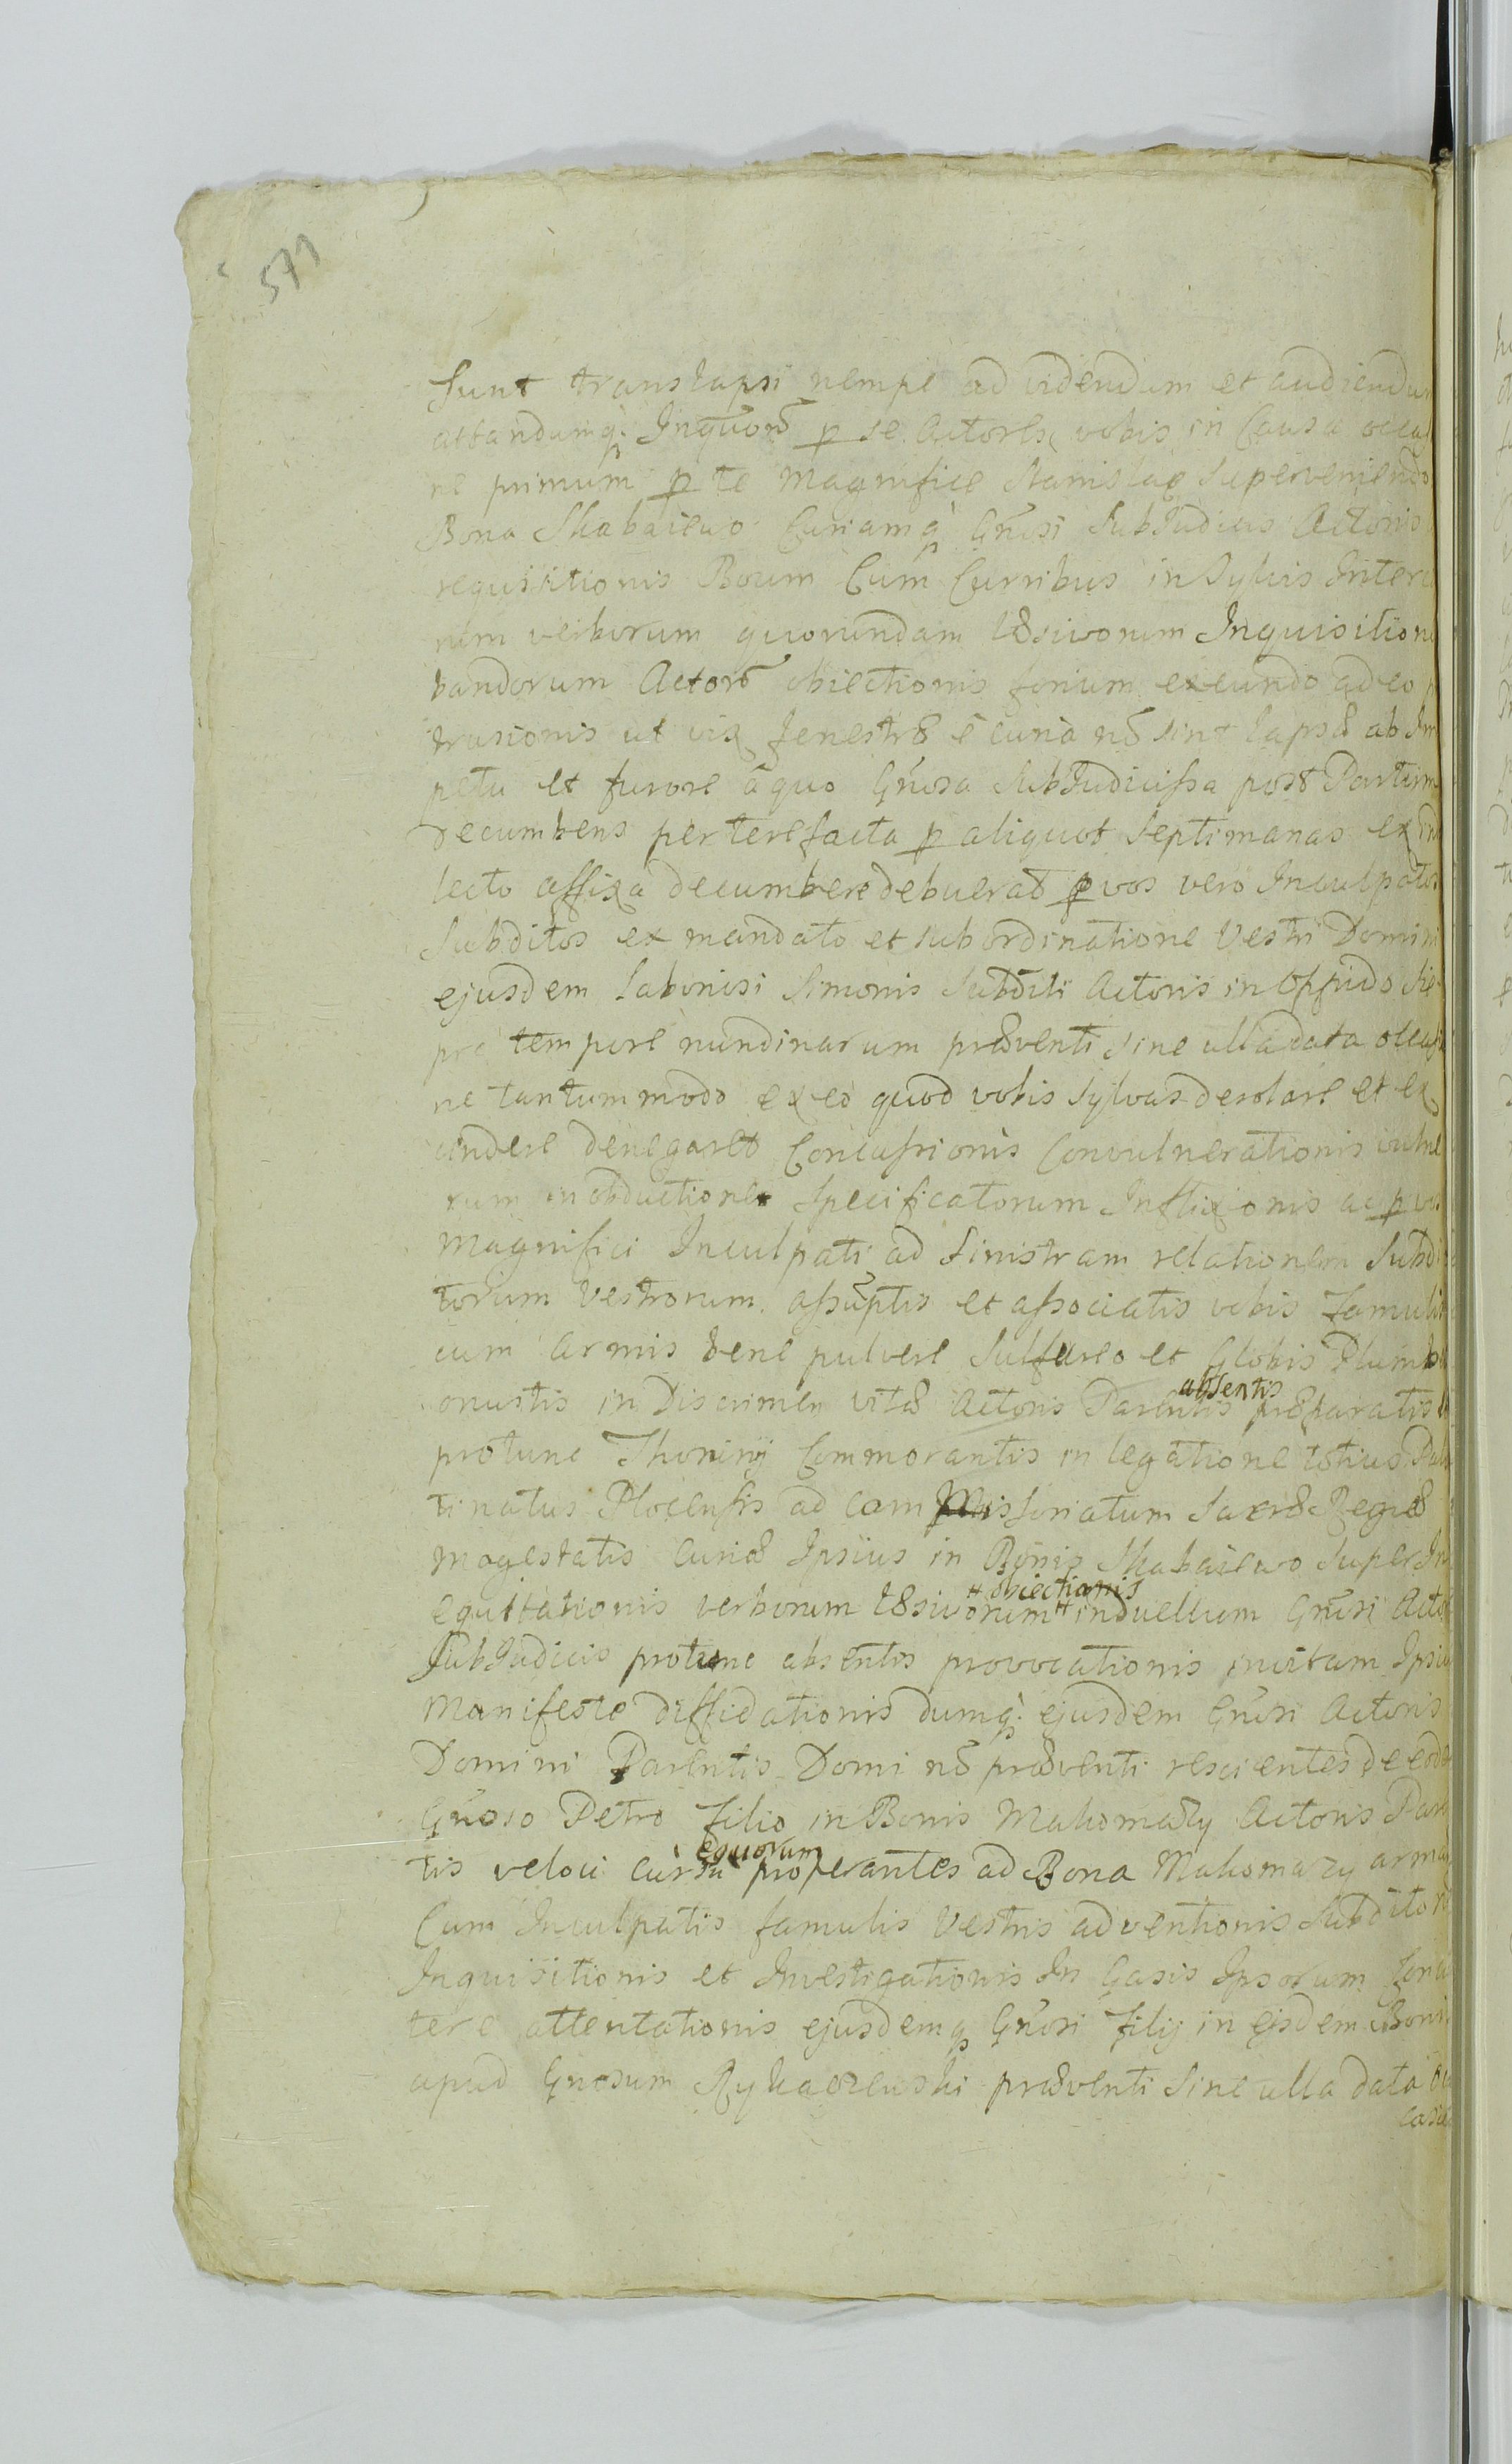 571
Sunt translapsi nempe ad videndum et audiendum
attandumq; Inquoõ p se Actores vobis in Causa occa
ne primum p te Magnifice Stanislae Superveniendo
Bona Skabaiewo Curiamq; Gnosi SubJudicis Actoris
requisitionis Boum Cum Curribus in Sylvis Interc
nem verborum quorundam læsivorum Inquisitione
bandorum Actorõ obiectionis forium exeundo adeo
trusionis ut vix fenestræ e curia nõ sint lapsæ ab Im
petu et furore a quo Gnosa SubJudicissa post Partum
Decumbens perterefacta p aliquot Septimanas ex in
lecto affixa decumbere debuerat p vos vero Inculpatos
Subditos ex mandato et subordinatione Vestri Domini
ejusdem laboriosi Simonis Subditi Actoris in Oppido Sie
pre tempore nundinarum præventi sine ulla data occasi
ne tantummodo ex eo quod vobis Sylvas desolare et ex
cindere denegaret Concussionis Convulnerationis vulne
rum in obductione Specificatorum Inflixionis ac p vos
Magnifici Inculpati ad sinistram relationem Subdi
torum Vestrorum assumptis et associatis vobis Famulis
cum armis bene pulvere Sulfureo et Globis Plumb
absentis
onustis in Discrimen vitæ Actoris Parentis præparatis
protunc Thorinij Commorantis in legatione totius Pala
tinatus Plocensis ad Commissoriatum Sacræ Regiæ
Magestatis Curiæ Ipsius in Bonis Skabaiewo Super In
# obiectionis
equitationis verborum læsivorum # in duellum Gnosi Acto
SubJudicis protunc absentis provocationis invitam Ipsiu
Manifeste diffidationis dumq; ejusdem Gnosi Actoris
Domini Parentis Domi nõ præventi rescientes de eode
Gnoso Petro Filio in Bonis Makomazy Actoris Paren
equorum
tis veloci cursu properantes ad Bona Makomazy arma
Cum Inculpatis famulis Vestris adventionis Subditorũ
Inquisitionis et Investigationis In Casis Ipsorum
tere attentationis ejusdemq; Gnosi Filij in eisdem Bonis
apud Gnosum præventi Sine ulla data oc
casio